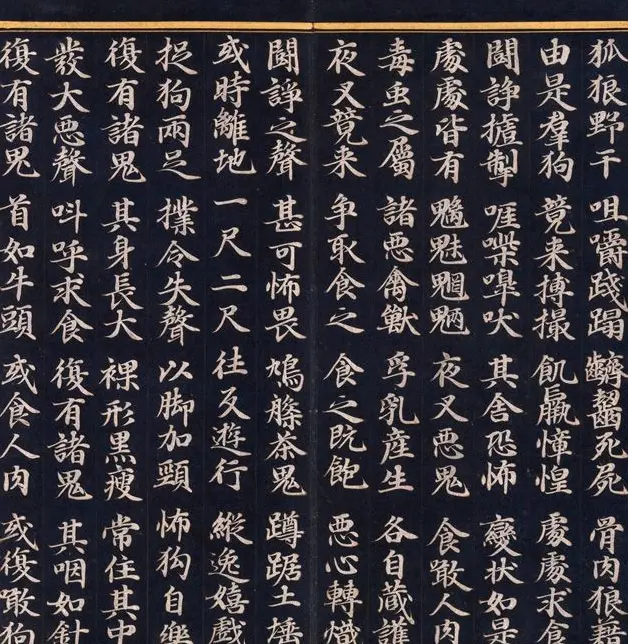 狐狼野干 咀嚼踐蹋 䶩齧死屍 骨肉狼藉
由是羣狗 竟来搏撮 飢羸慞惶 處處求食
鬪諍摣掣 啀喍嘷吠 其舍恐怖 變狀如是
處處皆有 魑魅魍魎 夜叉惡鬼 食噉人肉
毒虫之屬 諸惡禽獸 孚乳産生 各自藏護
夜叉竟来 争取食之 食之既飽 惡心轉熾
鬪諍之聲 甚可怖畏 鳩槃荼鬼 蹲踞土埵
或時離地 一尺二尺 往反遊行 縱逸嬉戲
捉狗兩足 撲令失聲 以脚加頸 怖狗自樂
復有諸鬼 其身長大 裸形黑瘦 常住其中
發大惡聲 叫呼求食 復有諸鬼 其咽如針
復有諸鬼 首如牛頭 或食人肉 或復噉狗